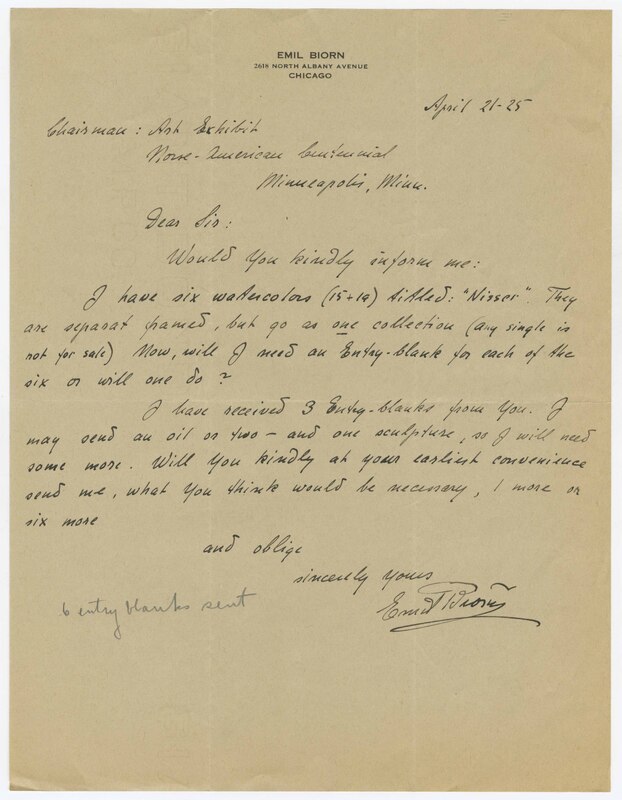 EMIL BIORN
2618 NORTH ALBANY AVENUE
CHICAGO
April 21-25
Chairman: Art Exhibit
Norse-American Centennial
Minneapolis, Minn.
Dear Sir:
Would You kindly inform me:
I have six watercolors (15+19) titled: "Nisser". They
are separat framed, but go as one collection (any single is
not for sale) Now, will I need an Entry-blank for each of the
six or will one do?
I have received 3 Entry-blanks from You. I
may send an oil or two – and one sculpture, so I will need
some more. Will You kindly at your earliest convenience
send me, what You think would be necessary, 1 more or
six more
and oblige
sincerely yours
Emil Biorn
6 entry blanks sent